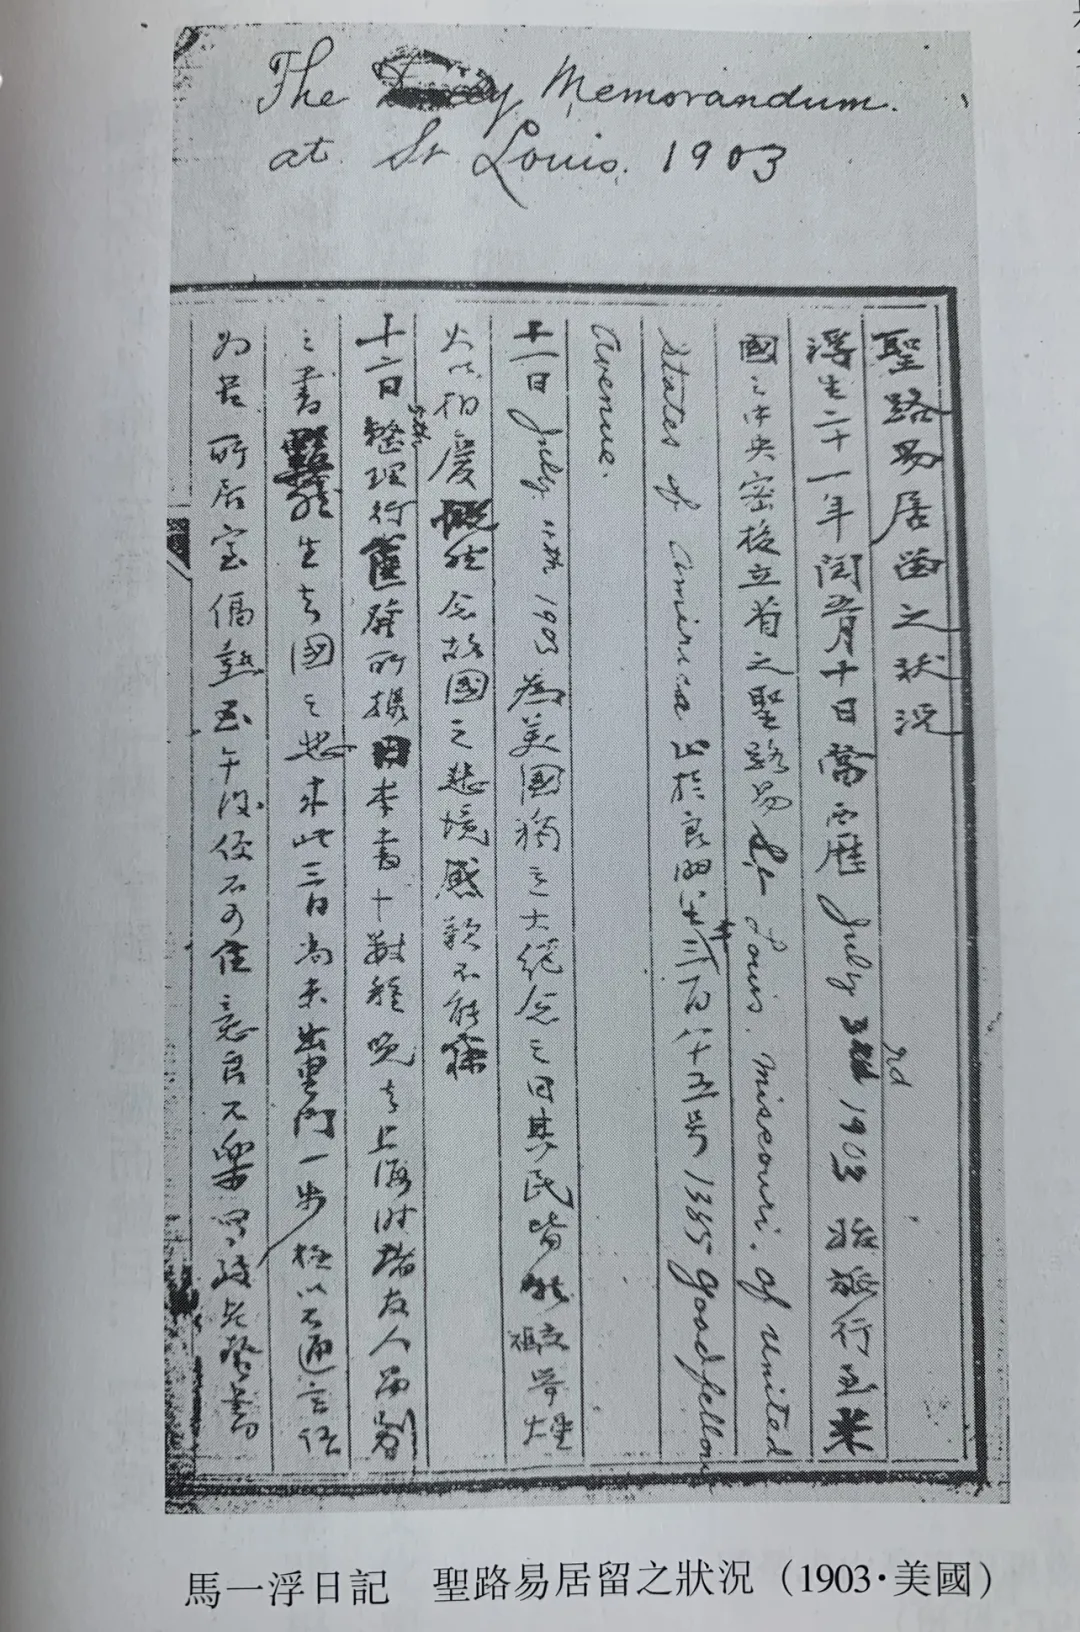 The Memorandum.
at St Louis. 1903
聖路易居留之狀況
浮生二十一年閏五月十日當西歷 July 3rd 1903 始旅行至米
國之中央密梭立省之聖路易 St Louis. Misecouri. of United
States of America 出於良朋 三百八十五号 1385 Goodfellow
Avenue.
十一日 July. 1903 為美國獨立大紀念之日其民皆 放煙
火以相慶慨然念故國之悲境感歎不能寐
十二日 5th 整理行篋癈所携日本書十數種晚去上海時諸友人留別
之書黯然生去國之悲來此三日尚未出里門一步極以不通言語
為苦所居室偪熱至午後便不可住意良不樂
馬一浮日記 聖路易居留之狀況（1903·美國）